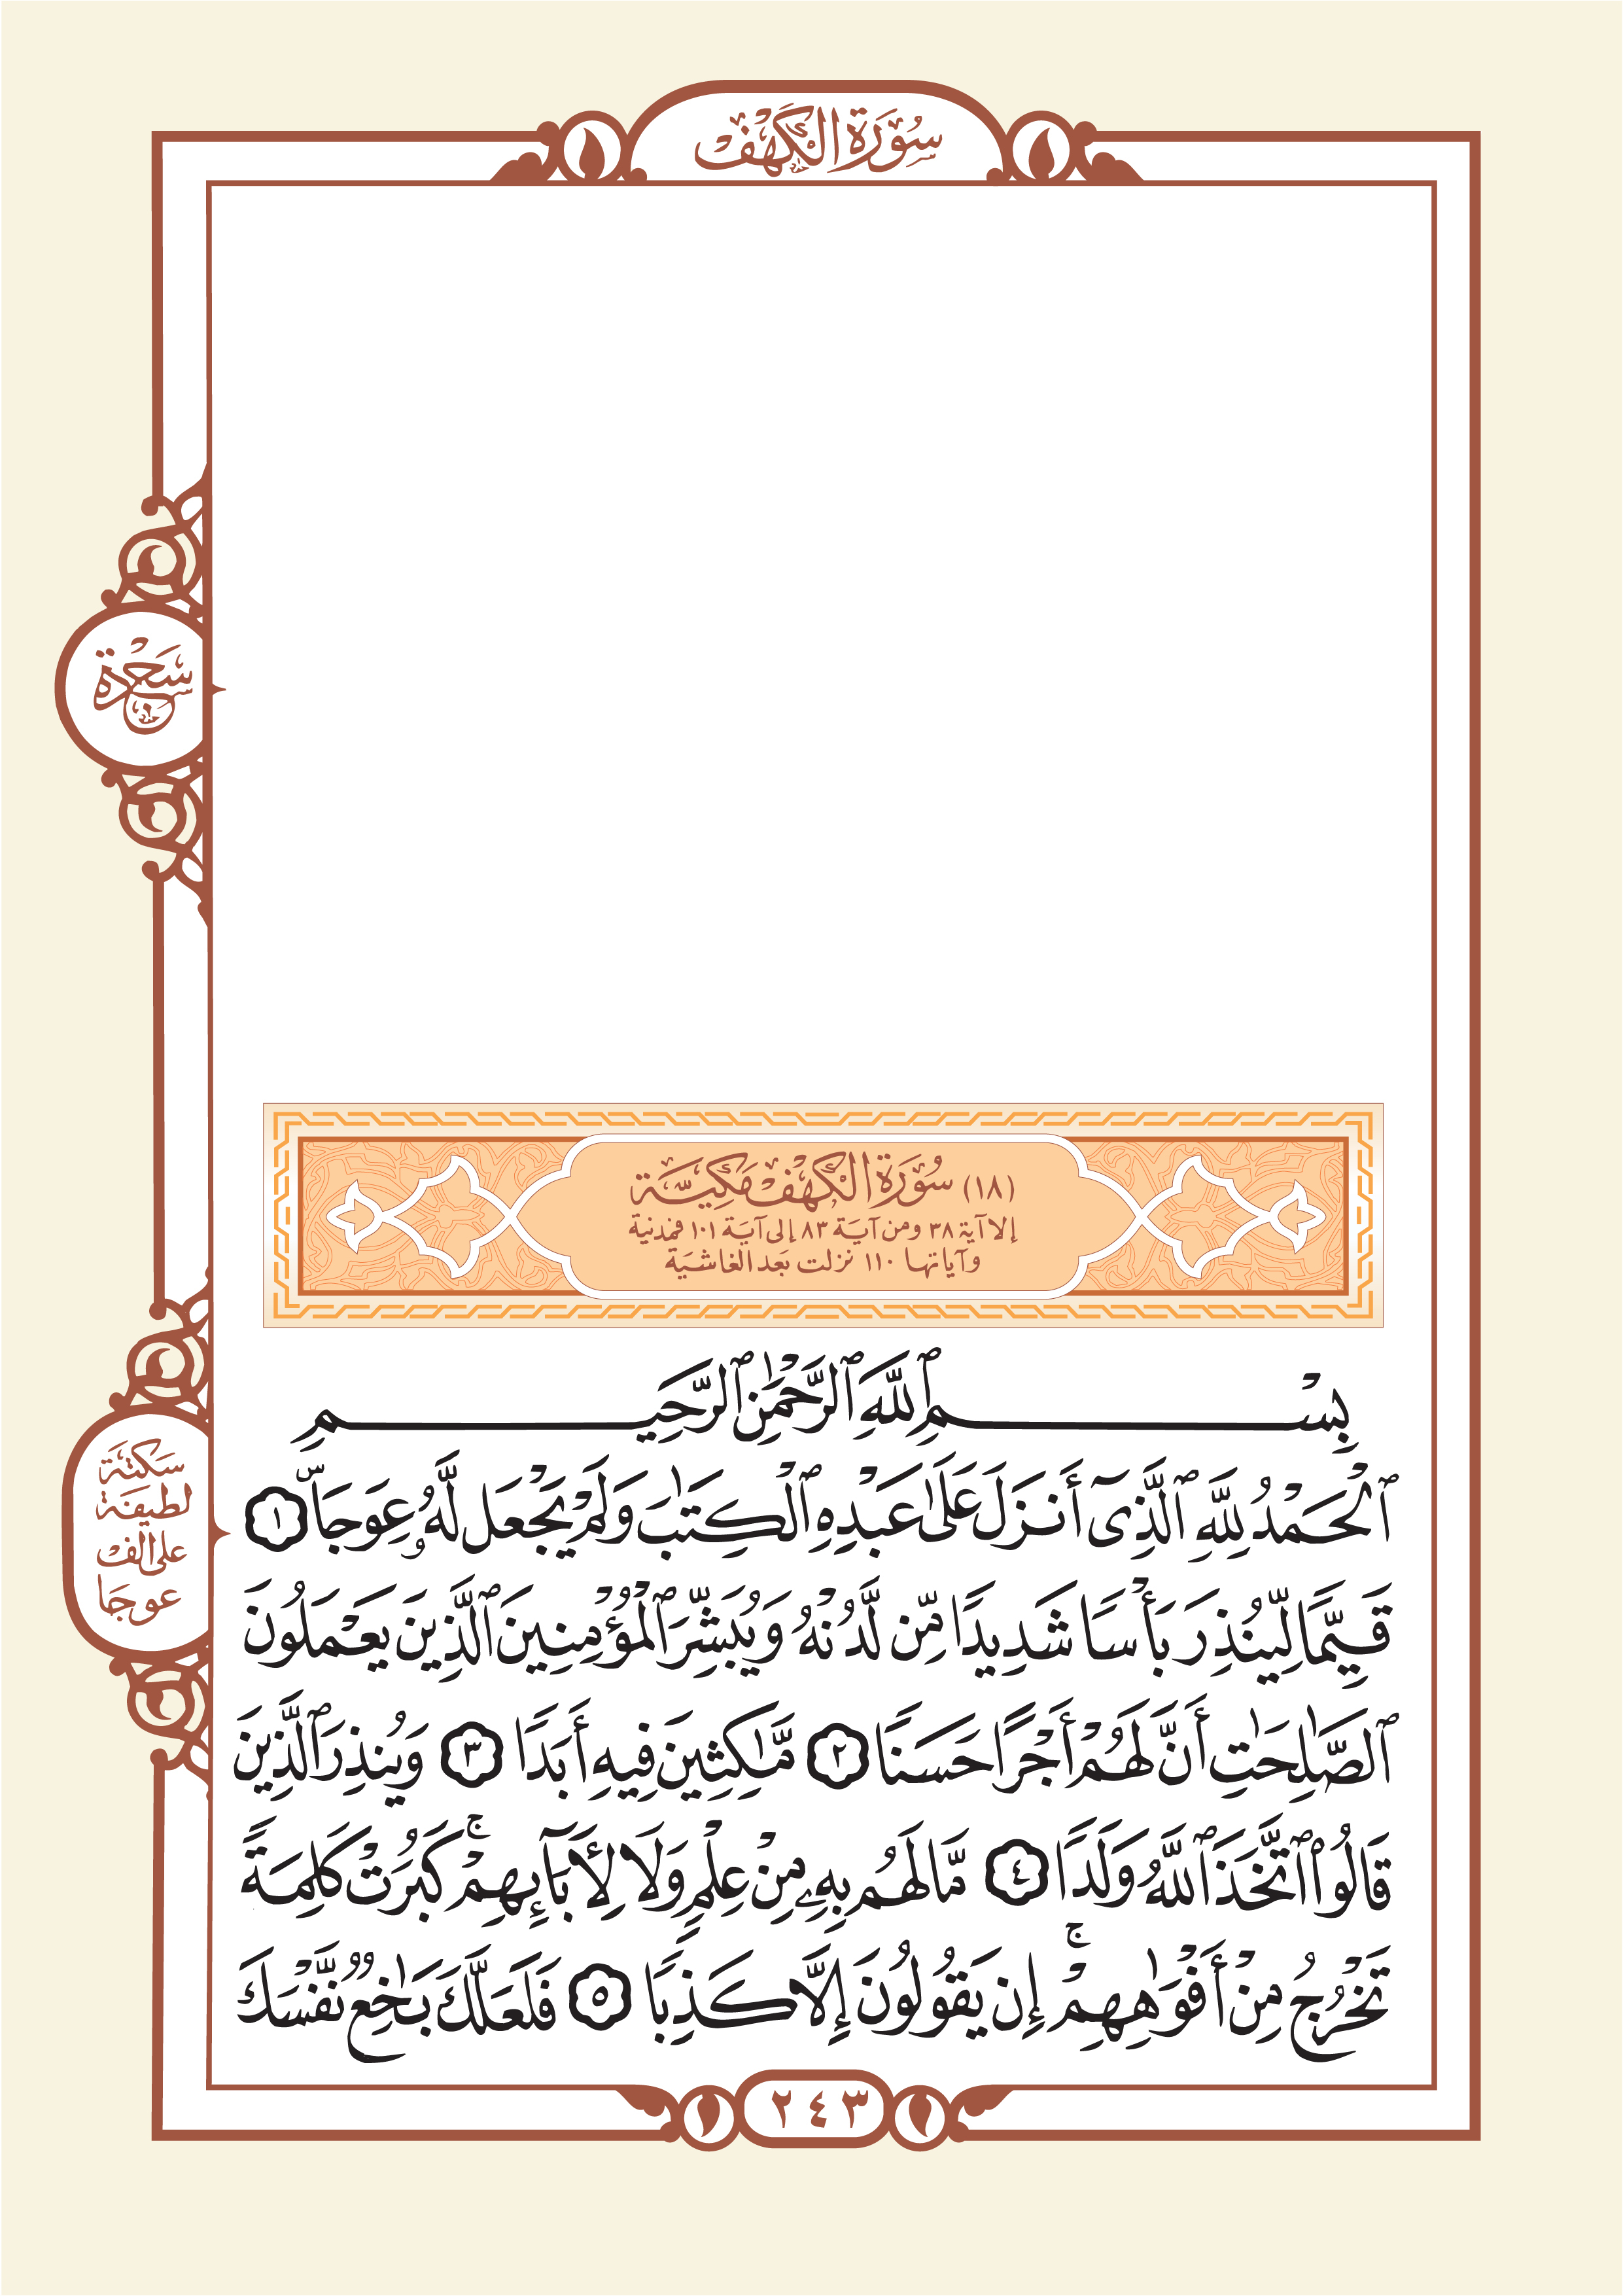 سُورَةُ الْكَهْفِ
سَجْدَة
(١٨) سُورَةُ الْكَهْفِ مَكِّيَّة
إلا آية ٣٨ ومن آيَة ٨٣ إلى آيَة ١٠١ فمدنية
وآياتها ١١٠ نزلت بَعد الغاشيَة
بِسْمِ ٱللَّهِ ٱلرَّحْمَٰنِ ٱلرَّحِيمِ
ٱلْحَمْدُ لِلَّهِ ٱلَّذِىٓ أَنزَلَ عَلَىٰ عَبْدِهِ ٱلْكِتَٰبَ وَلَمْ يَجْعَل لَّهُۥ عِوَجَاۜ ١
سَكتَة
لطيفَة
على ألف
عوجَا
قَيِّمًا لِّيُنذِرَ بَأْسًا شَدِيدًا مِّن لَّدُنْهُ وَيُبَشِّرَ ٱلْمُؤْمِنِينَ ٱلَّذِينَ يَعْمَلُونَ
ٱلصَّٰلِحَٰتِ أَنَّ لَهُمْ أَجْرًا حَسَنًا ٢ مَّٰكِثِينَ فِيهِ أَبَدًا ٣ وَيُنذِرَ ٱلَّذِينَ
قَالُوا۟ ٱتَّخَذَ ٱللَّهُ وَلَدًا ٤ مَّا لَهُم بِهِۦ مِنْ عِلْمٍ وَلَا لِأَبَآئِهِمْ ۚ كَبُرَتْ كَلِمَةً
تَخْرُجُ مِنْ أَفْوَٰهِهِمْ ۚ إِن يَقُولُونَ إِلَّا كَذِبًا ٥ فَلَعَلَّكَ بَٰخِعٌ نَّفْسَكَ
٢٤٣